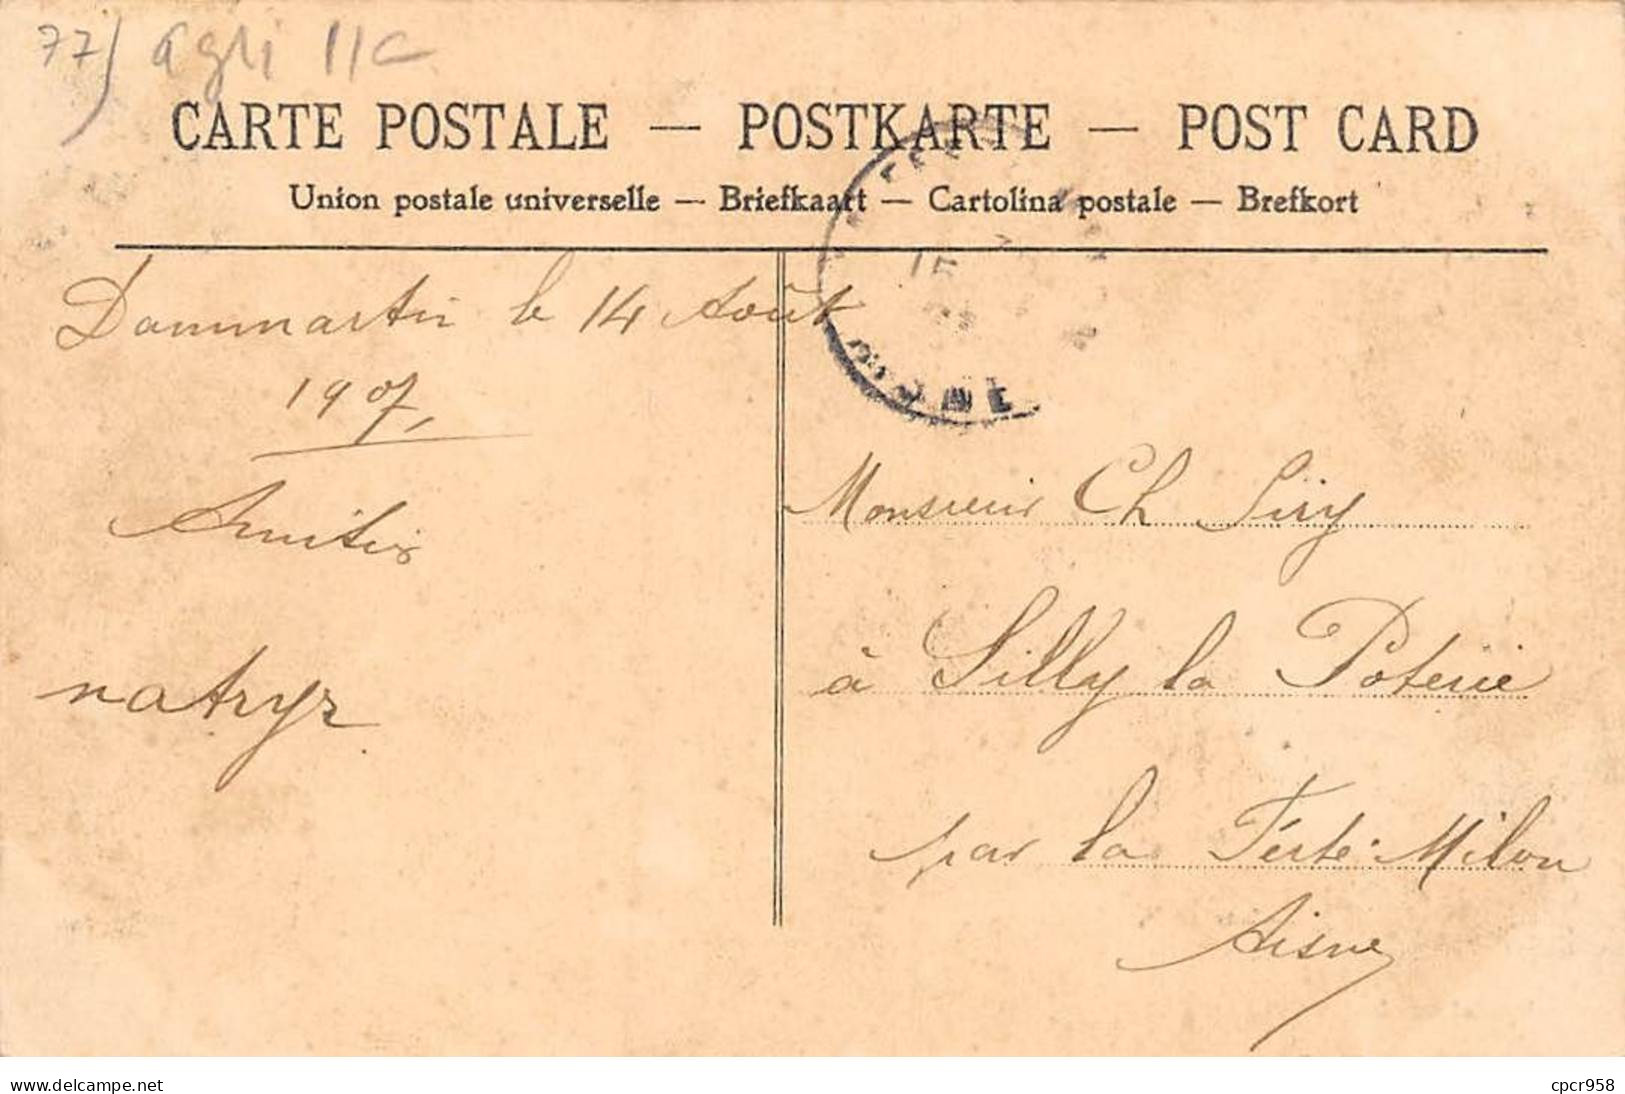 77) agri 11c
CARTE POSTALE — POSTKARTE — POST CARD
Union postale universelle — Briefkaart — Cartolina postale — Brefkort
Dammartin le 14 Août
1907,
Amitiés
Monsieur Ch Siry
à Silly la Poterie
par la Ferté-Milon
Aisne
delcampe.net
cpcr958